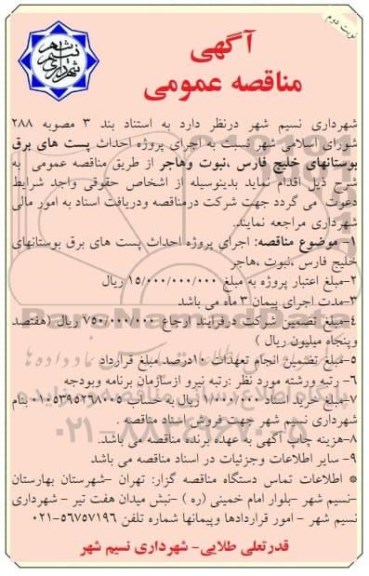 نوبت دوم
شهرداری نسیم شهر
آگهی
مناقصه عمومی
شهرداری نسیم شهر درنظر دارد به استناد بند ۳ مصوبه ۲۸۸
شورای اسلامی شهر نسبت به اجرای پروژه احداث پست های برق
بوستانهای خلیج فارس ،نبوت وهاجر از طریق مناقصه عمومی به
شرح ذیل اقدام نماید بدینوسیله از اشخاص حقوقی واجد شرایط
دعوت می گردد جهت شرکت درمناقصه ودریافت اسناد به امور مالی
شهرداری مراجعه نمایند.
۱- موضوع مناقصه: اجرای پروژه احداث پست های برق بوستانهای
خلیج فارس ،نبوت ،هاجر
۲-مبلغ اعتبار پروژه به مبلغ ۱۵/۰۰۰/۰۰۰/۰۰۰ ریال
۳-مدت اجرای پیمان ۳ ماه می باشد
۴-مبلغ تضمین شرکت درفرایند ارجاع ۷۵۰/۰۰۰/۰۰۰ ریال (هفتصد
وپنجاه میلیون ریال )
۵-مبلغ تضمین انجام تعهدات ۱۰درصد مبلغ قرارداد
۶- رتبه ورشته مورد نظر :رتبه نیرو ازسازمان برنامه وبودجه
۷-مبلغ خرید اسناد ۱/۰۰۰/۰۰۰ ریال به حساب ۰۱۰۵۳۹۵۲۶۸۰۰۵ بنام
شهرداری نسیم شهر جهت فروش اسناد مناقصه .
۸-هزینه چاپ آگهی به عهده برنده مناقصه می باشد.
۹- سایر اطلاعات وجزئیات در اسناد مناقصه می باشد
* اطلاعات تماس دستگاه مناقصه گزار: تهران -شهرستان بهارستان
-نسیم شهر -بلوار امام خمینی (ره) -نبش میدان هفت تیر - شهرداری
نسیم شهر - امور قراردادها وپیمانها شماره تلفن ۵۶۷۵۷۱۹۶-۰۲۱
قدرتعلی طلایی- شهرداری نسیم شهر